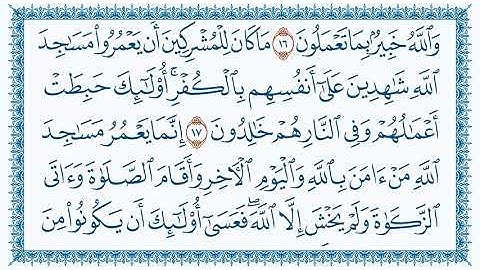 وَٱللَّهُ خَبِيرُۢ بِمَا تَعۡمَلُونَ ١٦ مَا كَانَ لِلۡمُشۡرِكِينَ أَن يَعۡمُرُواْ مَسَٰجِدَ
ٱللَّهِ شَٰهِدِينَ عَلَىٰٓ أَنفُسِهِم بِٱلۡكُفۡرِۚ أُوْلَٰٓئِكَ حَبِطَتۡ
أَعۡمَٰلُهُمۡ وَفِي ٱلنَّارِ هُمۡ خَٰلِدُونَ ١٧ إِنَّمَا يَعۡمُرُ مَسَٰجِدَ
ٱللَّهِ مَنۡ ءَامَنَ بِٱللَّهِ وَٱلۡيَوۡمِ ٱلۡأٓخِرِ وَأَقَامَ ٱلصَّلَوٰةَ وَءَاتَى
ٱلزَّكَوٰةَ وَلَمۡ يَخۡشَ إِلَّا ٱللَّهَۖ فَعَسَىٰٓ أُوْلَٰٓئِكَ أَن يَكُونُواْ مِنَ